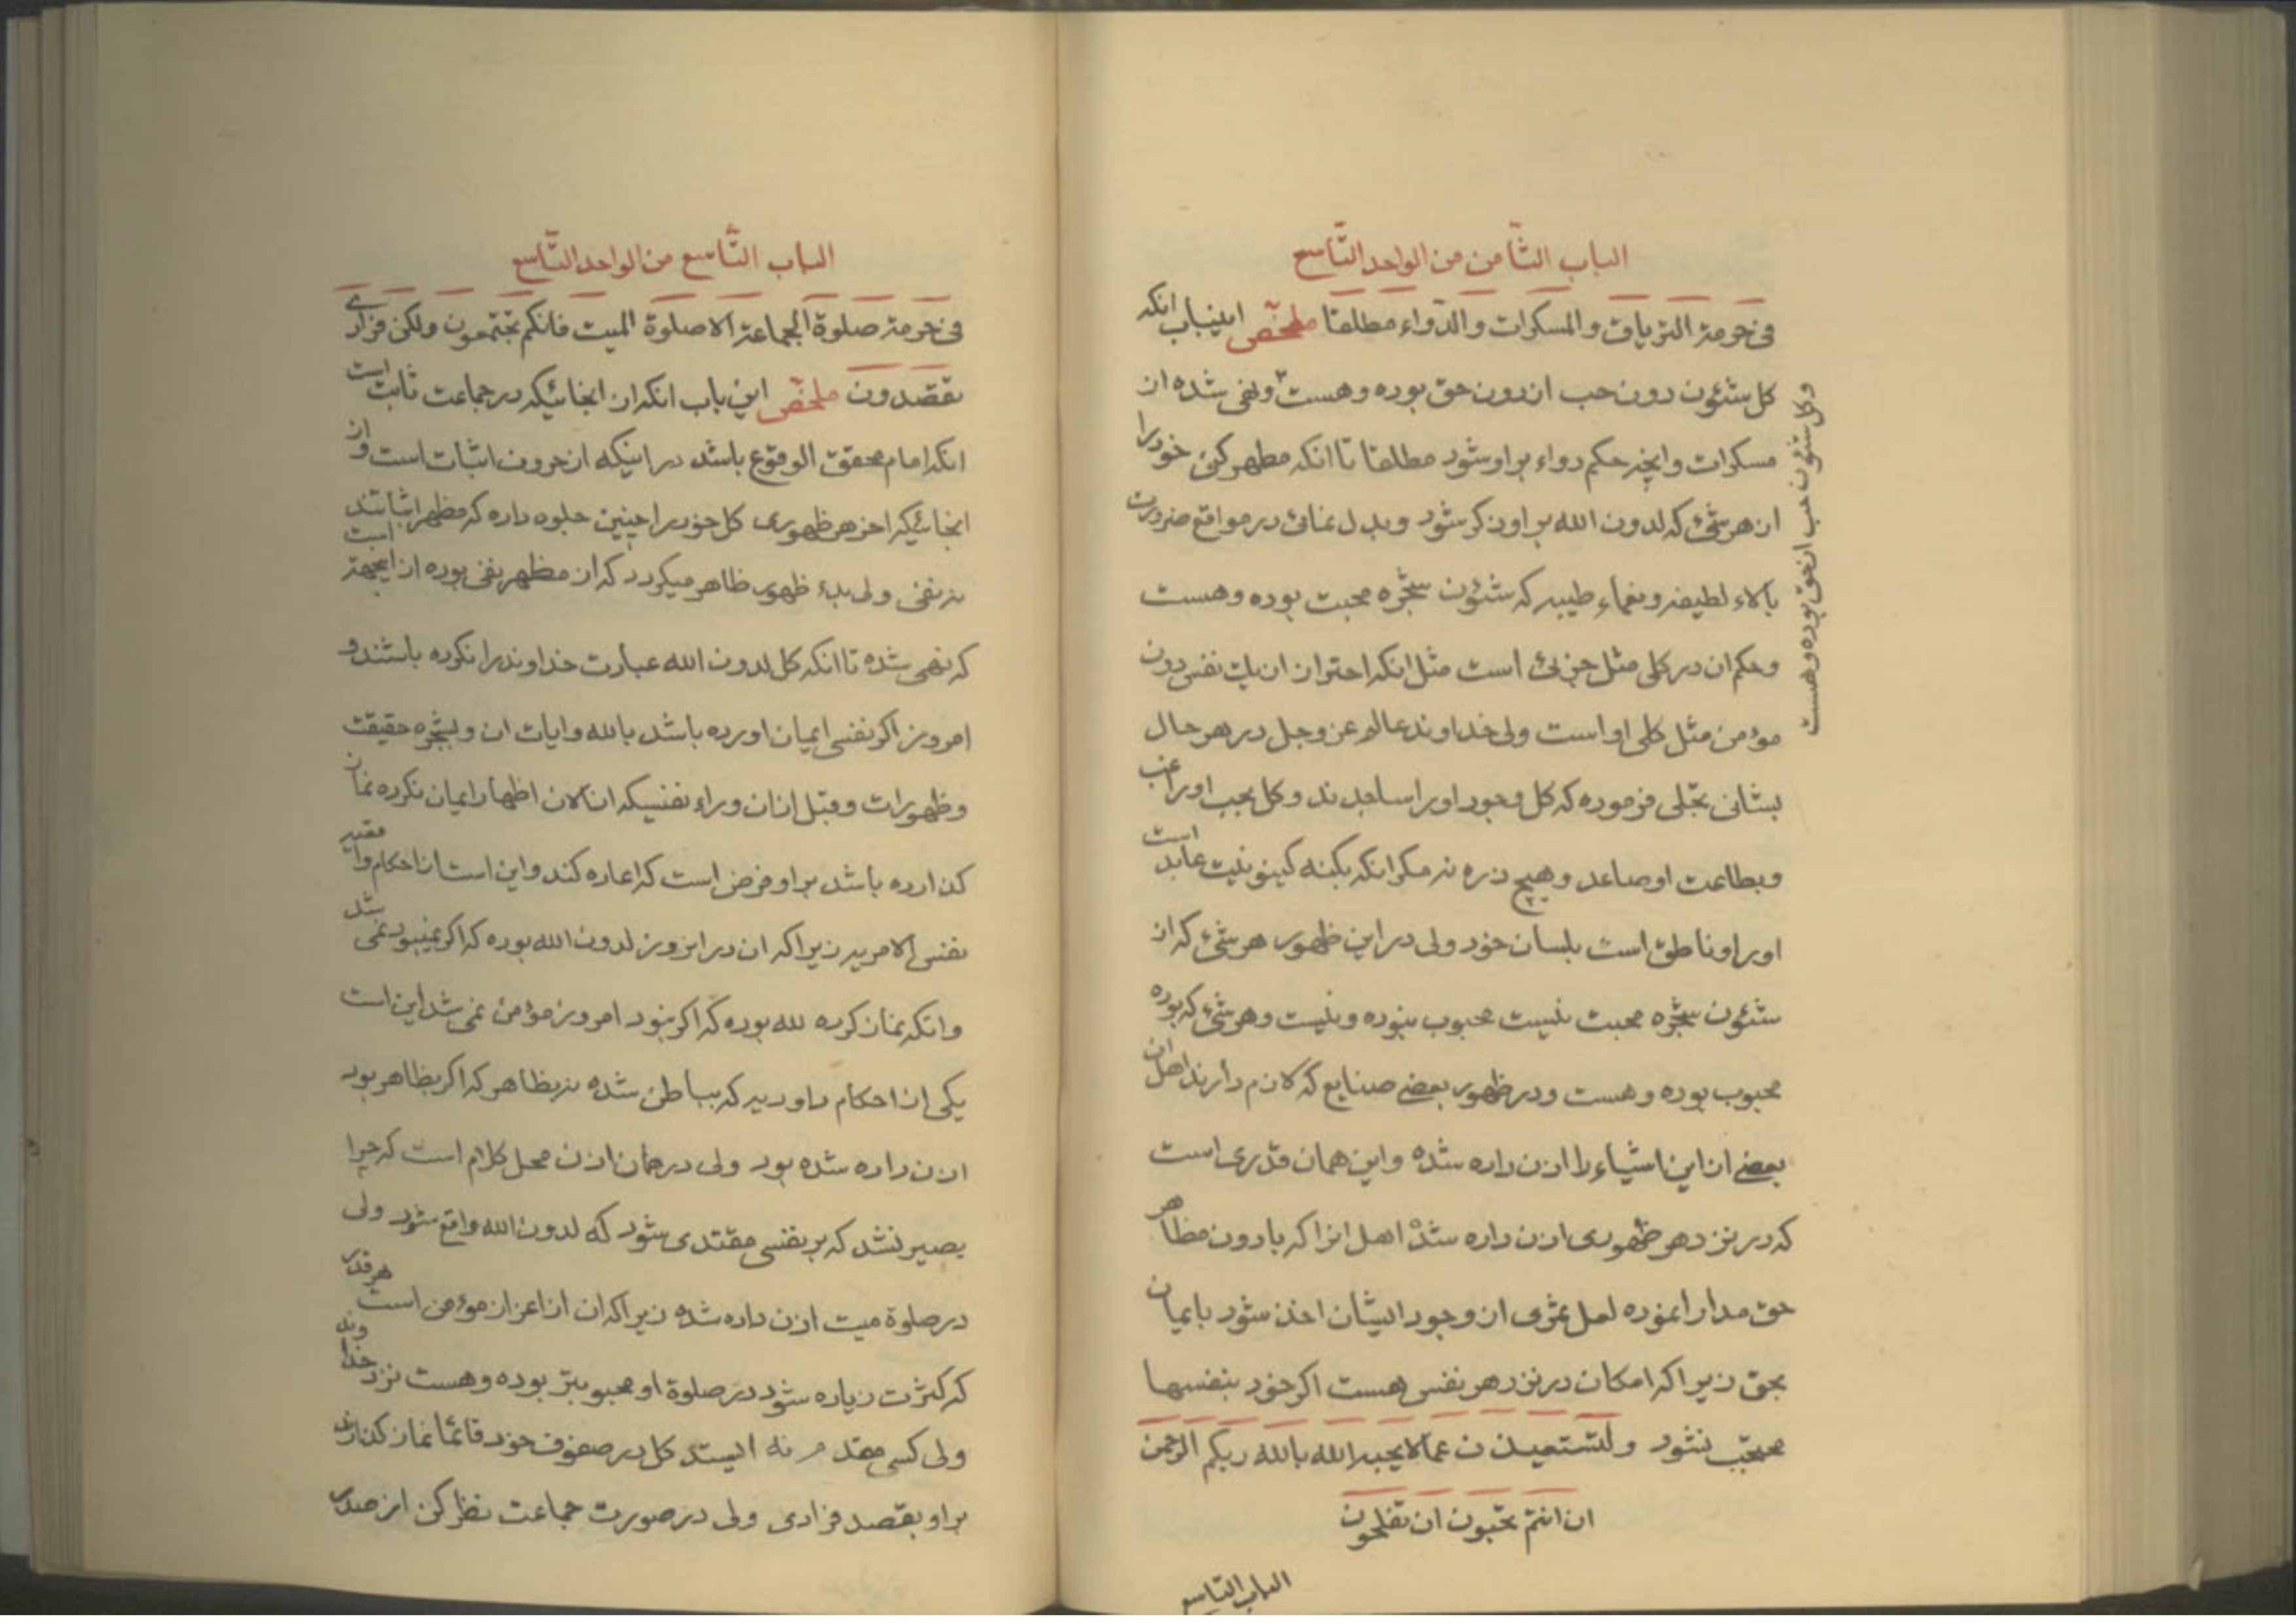 الباب الثّامن من الواحد التّاسع
فی حرمة التریاق و المسکرات و الدّواء مطلقا ملخّص اینباب انکه
کل شئون دون حب از دون حق بوده و هست و نهی شده از
مسکرات و انچه حکم دواء بر او شود مطلقا تا انکه مطهر کنی خود را
از هر شیٔ که لدون الله بر او ذکر شود و بدل نمائی در مواقع ضرورت
بالاء لطیفه و نعماء طیبه که شئون شجره محبت بوده و هست
و حکم ان در کلی مثل جزئی است مثل انکه احتراز از یک نفس دون
مؤمن مثل کلی او است ولی خداوند عالم عز و جل در هر حال
بشانی تجلی فرموده که کل وجود او را ساجدند و کل بحب او راغب
و بطاعت او صاعد و هیچ ذره نه مکر انکه بکنه کینونیت عابد است
او را و ناطق است بلسان خود ولی در این ظهور هر شیٔ که از
شئون شجره محبت نیست محبوب نبوده و نیست و هر شیٔ که بوده
محبوب بوده و هست و در ظهور بعضی صنایع که لازم دارند اهل ان
بعضی از این اشیاء را اذن داده شده و این همان قدری است
که در نزد هر ظهوری اذن داده شده اهل انرا که با دون مظاهر
حق مدارا نموده لعل ثمری از وجود ایشان اخذ شود بایمان
بحق زیرا که امکان در نزد هر نفس هست اکر خود بنفسها
محتجب نشود و لتستعیذن عما لا یحبه الله بالله ربکم الرحمن
ان انتم تحبون ان تفلحون
الباب التاسع
و کل شئون حب از حق بوده و هست
الباب التّاسع من الواحد التّاسع
فی حرمة صلوة الجماعة الا صلوة المیت فانکم تجتمعون ولکن فرادی
تقصدون ملخّص این باب انکه از انجائیکه در جماعت ثابت است
انکه امام محقق الوقوع باشد در اینکه از حروف اثبات است و از
انجائیکه اخر هر ظهوری کل خود را چنین جلوه داده که مظهر اثباتند
نه نفی ولی بدء ظهور ظاهر میکردد که از مظهر نفی بوده از اینجهة است
که نهی شده تا انکه کل لدون الله عبادت خداوند را نکرده باشند و
امروز اکر نفسی ایمان اورده باشد بالله و ایات ان و بشجره حقیقت
و ظهورات و قبل از ان وراء نفسیکه الان اظهار ایمان نکرده نماز
کذارده باشد بر او فرض است که اعاده کند و این است از احکام واقعیه
نفس الامریه زیرا که ان در انروز لدون الله بوده که اکر نمیبود نمی شد
و انکه نماز کرده لله بوده که اکر نبود امروز مؤمن نمی شد این است
یکی از احکام داودیه که بباطن شده نه بظاهر که اکر بظاهر بود
اذن داده شده بود ولی در همان اذن محل کلام است که چرا
بصیر نشد که بر نفسی مقتدی شود که لدون الله واقع شود ولی
در صلوة میت اذن داده شده زیرا که ان از اعزاز مؤمن است هر قدر
که کثرت زیاده شود در صلوة او محبوبتر بوده و هست نزد خداوند
ولی کسی مقدم نه ایستد کل در صفوف خود قائما نماز کذارند
بر او بقصد فرادی ولی در صورت جماعت نظر کن از صدر